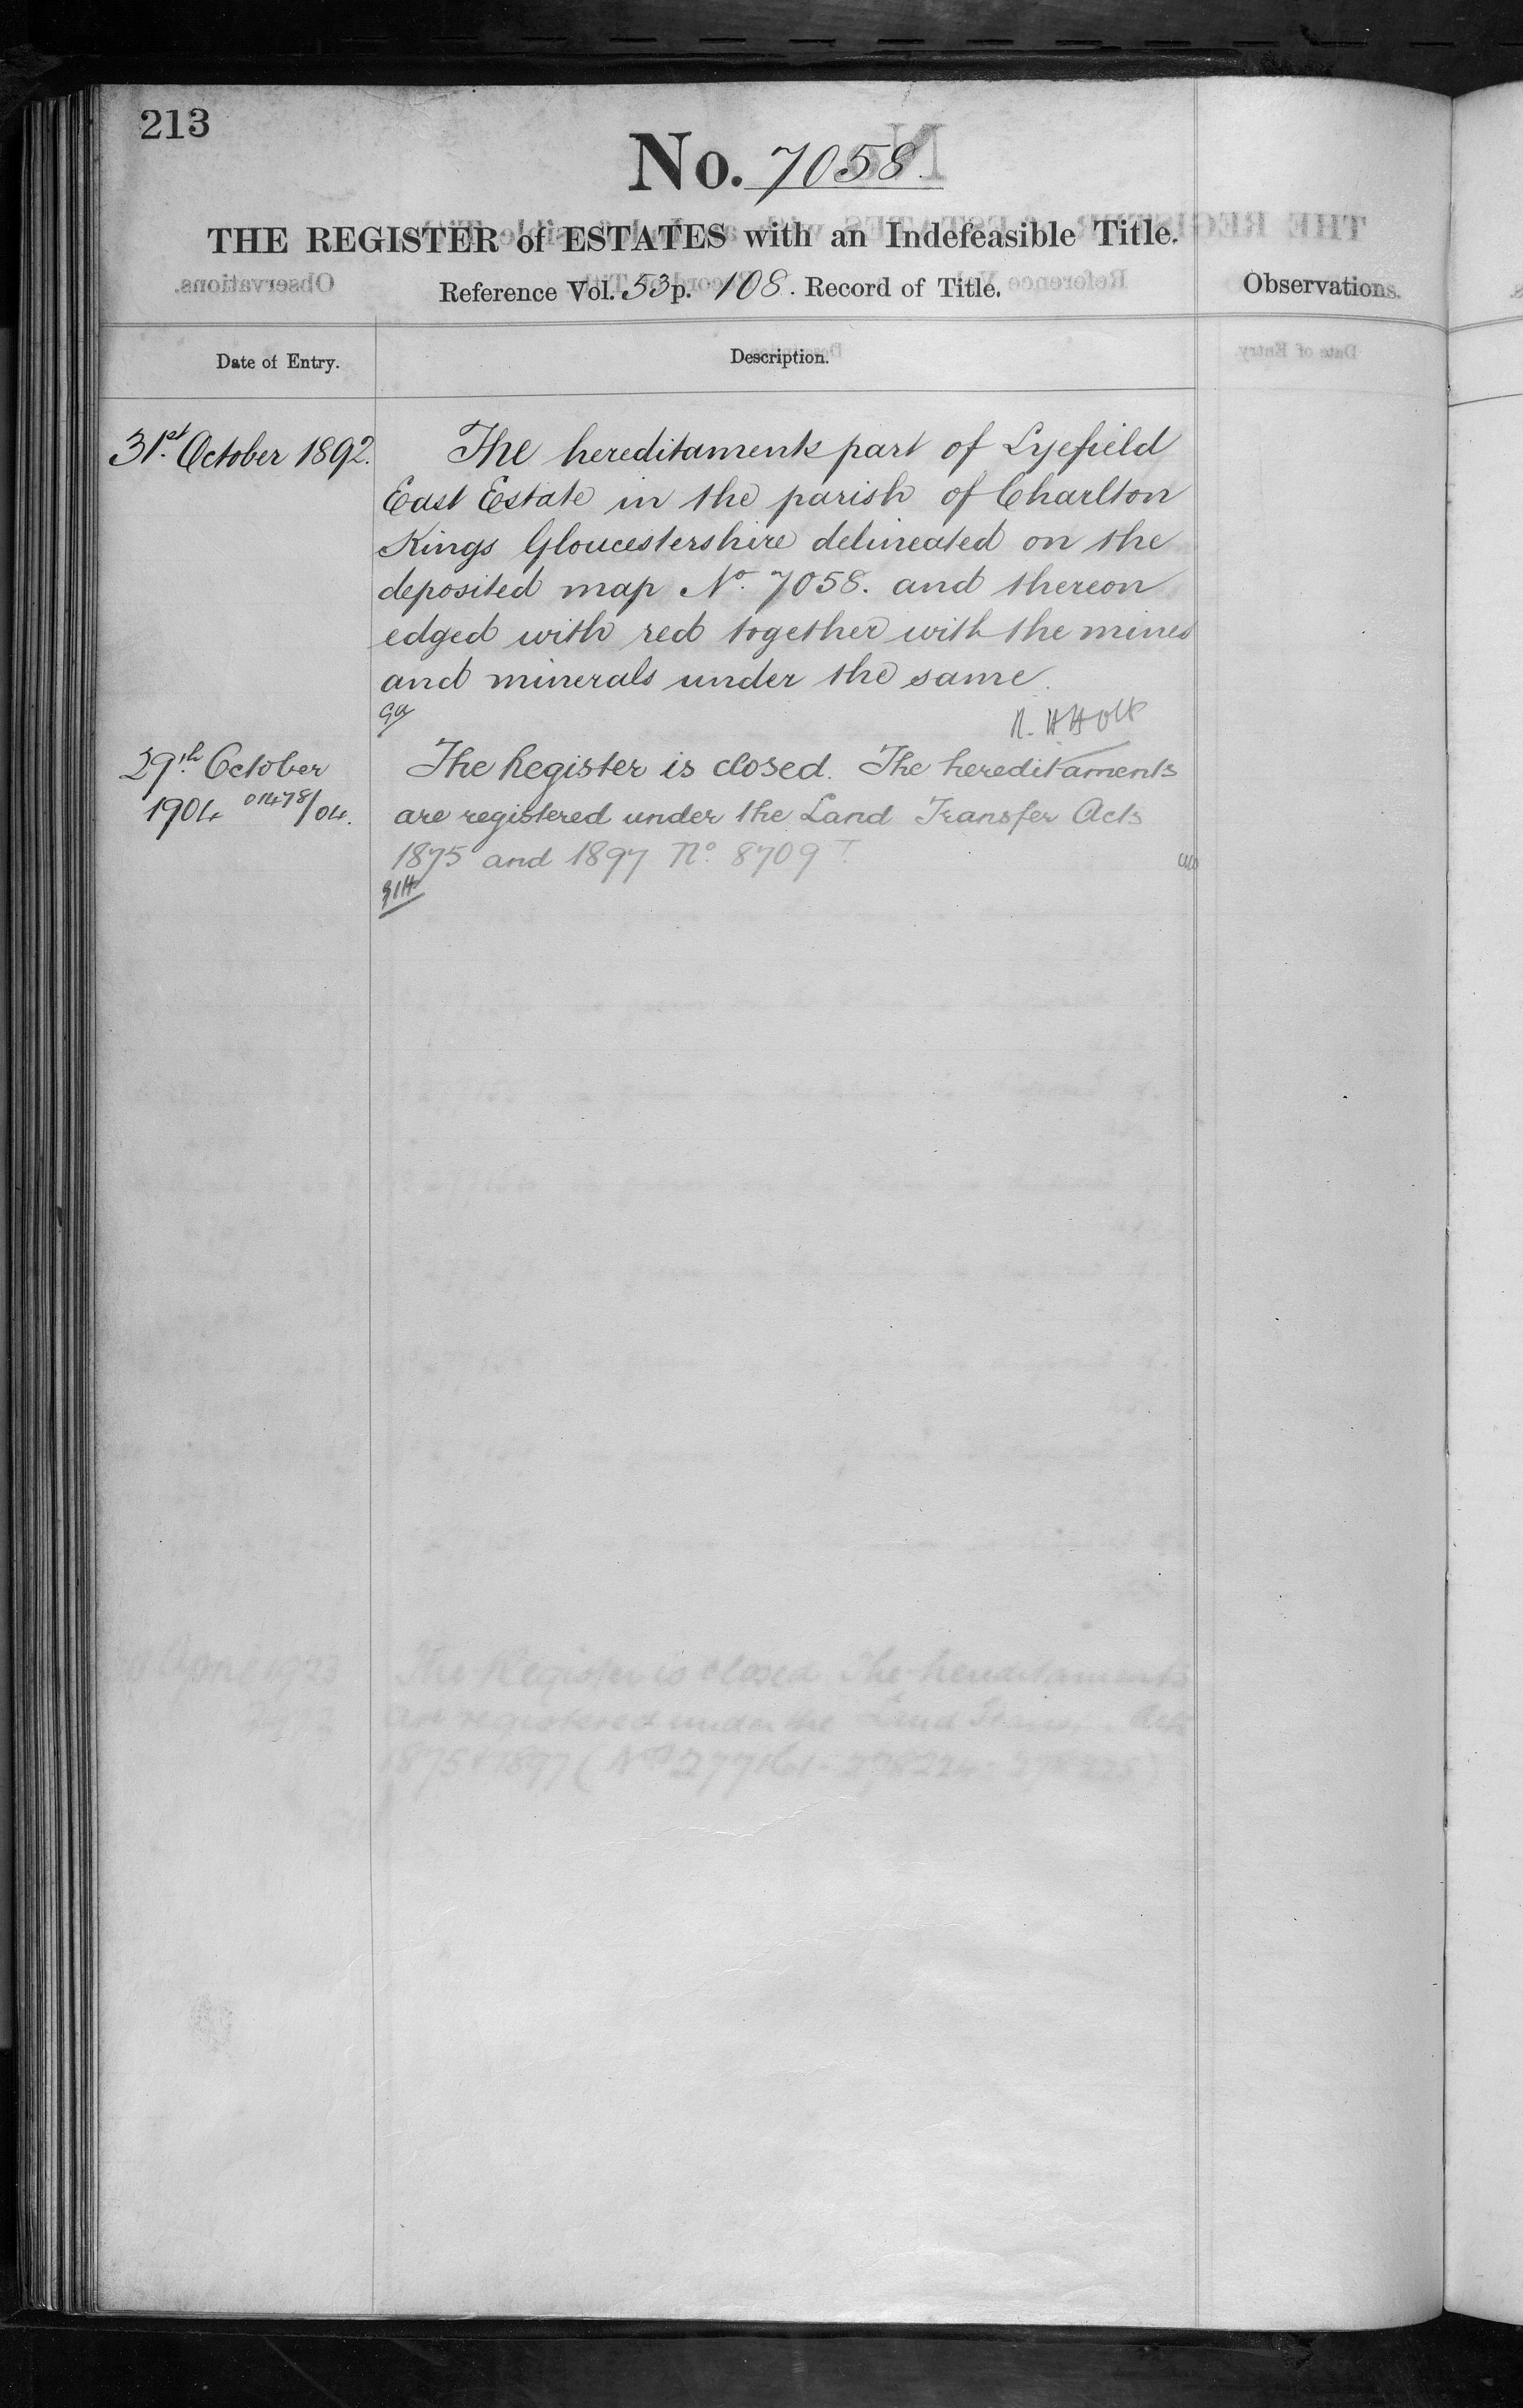 213
No. 7058
THE REGISTER of ESTATES with an Indefeasible Title.
Reference Vol. 53 p. 108. Record of Title.
Observations.
Date of Entry.
Description.
31st. October 1892.
The hereditaments part of Lyefield
East Estate in the parish of Charlton
Kings Gloucestershire delineated on the
deposited map No. 7058. and thereon
edged with red together with the mines
and minerals under the same.
R. H Holt
29th. October
1904 01478/04.
The Register is closed. The hereditaments
are registered under the Land Transfer Acts
1875 and 1897 No. 8709 T.
April 1923
The Register is closed The hereditaments
are registered under the Land Acts
1875 & 1897 (Nos 277161 - 278224 -